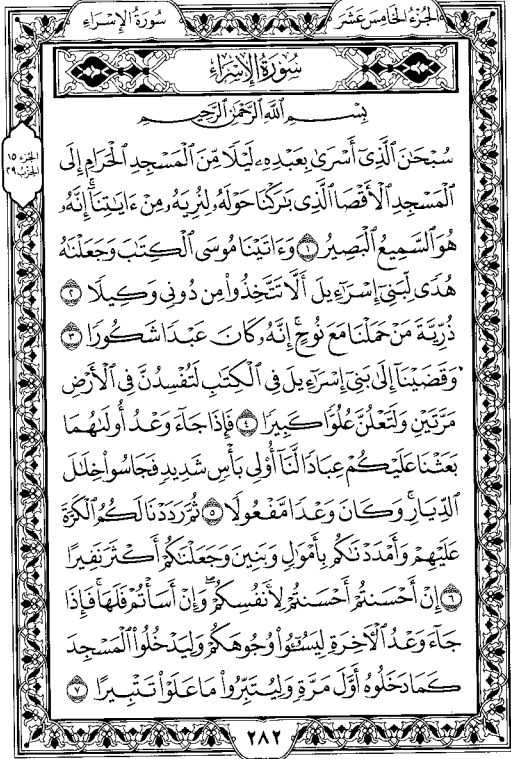 الجُزءُ الخَامِسَ عَشَرَ
سُورَةُ الإِسْرَاءِ
سُورَةُ الإِسْرَاءِ
بِسْمِ ٱللَّهِ ٱلرَّحْمَٰنِ ٱلرَّحِيمِ
الجزء ١٥
الحزب ٢٩
سُبْحَٰنَ ٱلَّذِىٓ أَسْرَىٰ بِعَبْدِهِۦ لَيْلًا مِّنَ ٱلْمَسْجِدِ ٱلْحَرَامِ إِلَى
ٱلْمَسْجِدِ ٱلْأَقْصَا ٱلَّذِى بَٰرَكْنَا حَوْلَهُۥ لِنُرِيَهُۥ مِنْ ءَايَٰتِنَآ ۚ إِنَّهُۥ
هُوَ ٱلسَّمِيعُ ٱلْبَصِيرُ ١ وَءَاتَيْنَا مُوسَى ٱلْكِتَٰبَ وَجَعَلْنَٰهُ
هُدًى لِّبَنِىٓ إِسْرَٰٓءِيلَ أَلَّا تَتَّخِذُوا۟ مِن دُونِى وَكِيلًا ٢
ذُرِّيَّةَ مَنْ حَمَلْنَا مَعَ نُوحٍ ۚ إِنَّهُۥ كَانَ عَبْدًا شَكُورًا ٣
وَقَضَيْنَآ إِلَىٰ بَنِىٓ إِسْرَٰٓءِيلَ فِى ٱلْكِتَٰبِ لَتُفْسِدُنَّ فِى ٱلْأَرْضِ
مَرَّتَيْنِ وَلَتَعْلُنَّ عُلُوًّا كَبِيرًا ٤ فَإِذَا جَآءَ وَعْدُ أُولَىٰهُمَا
بَعَثْنَا عَلَيْكُمْ عِبَادًا لَّنَآ أُو۟لِى بَأْسٍ شَدِيدٍ فَجَاسُوا۟ خِلَٰلَ
ٱلدِّيَارِ ۚ وَكَانَ وَعْدًا مَّفْعُولًا ٥ ثُمَّ رَدَدْنَا لَكُمُ ٱلْكَرَّةَ
عَلَيْهِمْ وَأَمْدَدْنَٰكُم بِأَمْوَٰلٍ وَبَنِينَ وَجَعَلْنَٰكُمْ أَكْثَرَ نَفِيرًا
٦ إِنْ أَحْسَنتُمْ أَحْسَنتُمْ لِأَنفُسِكُمْ ۖ وَإِنْ أَسَأْتُمْ فَلَهَا ۚ فَإِذَا
جَآءَ وَعْدُ ٱلْءَاخِرَةِ لِيَسُۥٓـُٔوا۟ وُجُوهَكُمْ وَلِيَدْخُلُوا۟ ٱلْمَسْجِدَ
كَمَا دَخَلُوهُ أَوَّلَ مَرَّةٍ وَلِيُتَبِّرُوا۟ مَا عَلَوْا۟ تَتْبِيرًا ٧
٢٨٢